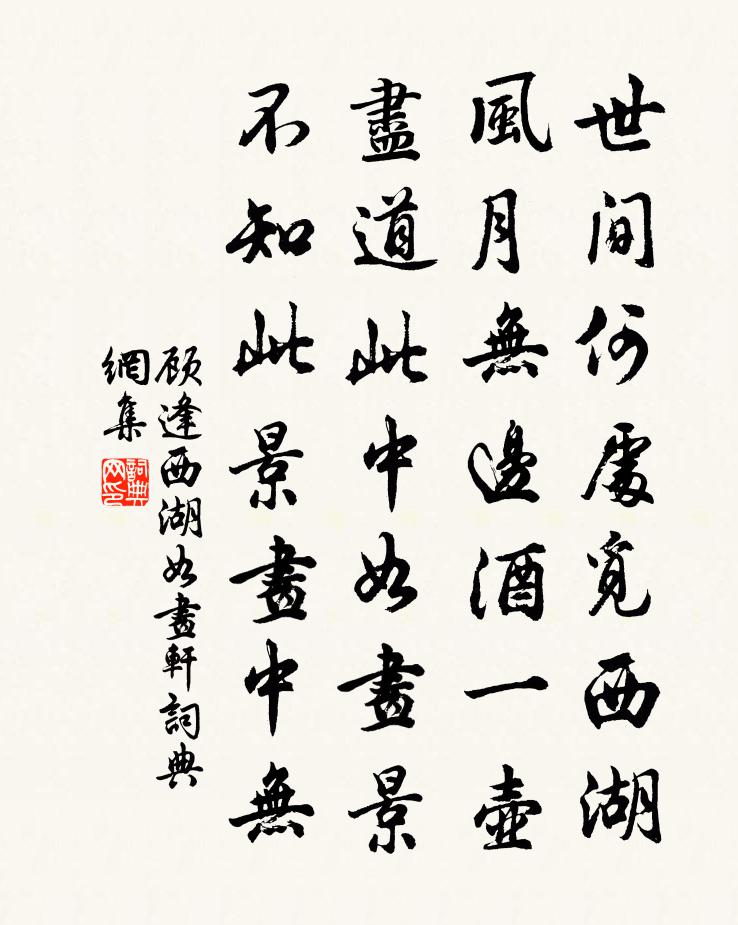 世間何處覓西湖
風月無邊酒一壺
盡道此中如畫景
不知此景畫中無
顧逢西湖如畫軒詞典
網集
詞典網印